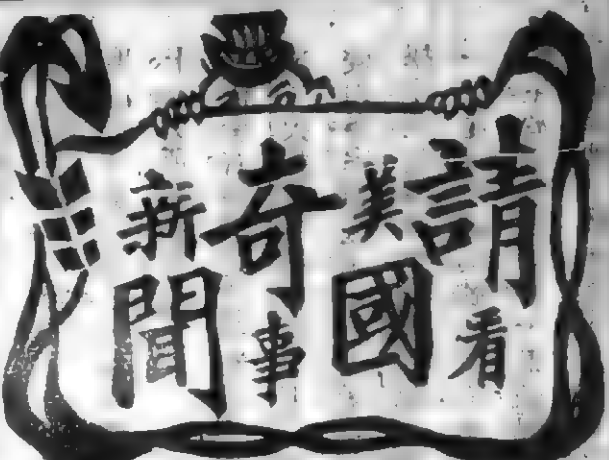 請看
美國
奇事
新聞